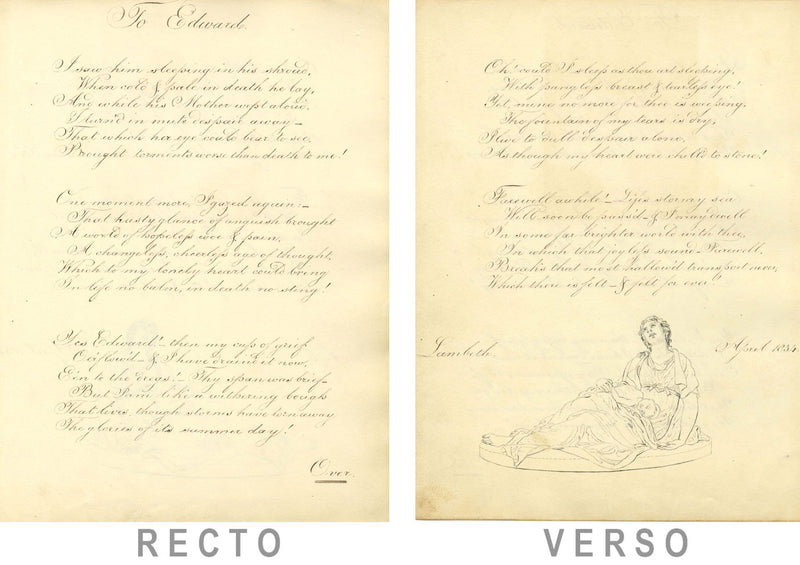 To Edward.
I saw him sleeping in his shroud,
When cold & pale in death he lay,
And while his Mother wept aloud,
I turn'd in mute despair away –
That which her eye could bear to see,
Brought torments worse than death to me!
One moment more, I gazed again: –
That hasty glance of anguish brought
A world of hopeless woe & pain,
A changeless, cheerless age of thought,
Which to my lonely heart could bring
In life no balm, in death no sting!
Yes Edward! – then my cup of grief
O'erflow'd – & I have drain'd it now,
E'en to the dregs! – Thy span was brief –
But I'm like a withering bough
That lives, though storms have torn away
The glories of its summer day!
Over.
Oh! could I sleep as thou art sleeping,
With pangless breast & tearless eye!
Yet, mine no more for thee is weeping,
The fountain of my tears is dry,
I live to dull despair alone,
As though my heart were chill'd to stone!
Farewell awhile! – Life's stormy sea
Will soon be pass'd – & I may dwell
In some far brighter world with thee,
In which that joyless sound – Farewell,
Breaks that most hallow'd transport never,
Which there is felt – & felt for ever!
Lambeth.
April 1834.
RECTO
VERSO